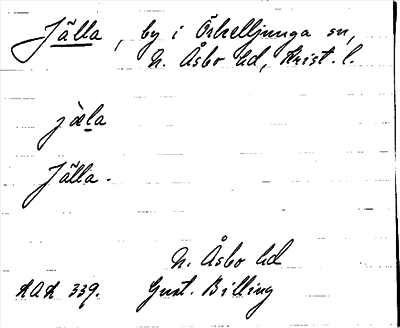 Jälla, by i Örkelljunga sn,
N. Åsbo hd, Krist. l.
jæla
Jälla.
N. Åsbo hd
LAL 339. Gust. Billing